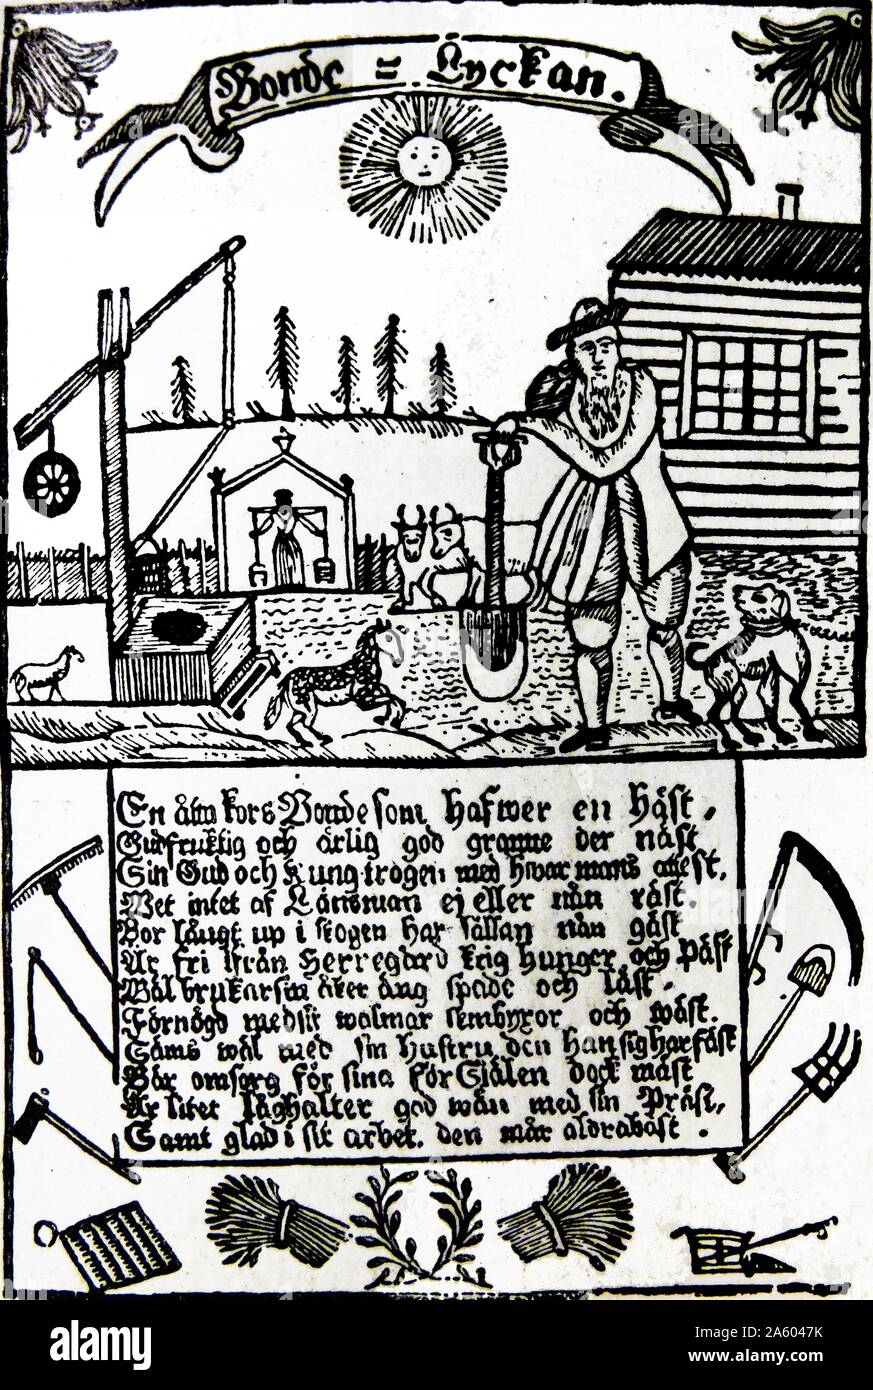 Bonde = Lyckan.
En åtta kors Bonde som hafwer en Häst,
Gudfruktig och ärlig god granne der näst
Sin Gud och Kung trogen med hwar mans attest,
Wet intet af Länsman ej eller nån räst.
Bor långt up i skogen har sällan nån gäst
Är fri ifrån Herregård krig hunger och Päst
Wäl brukar sin åker äng spade och läst.
Förnögd med sit walmar lembyxor och wäst.
Säms wäl med sin Hustru den Han sig har fäst
Bär omsorg för sina för Själen dock mäst
Är litet låghalter god wän med sin Präst,
Samt glad i sit arbet. den mår aldrabäst.
alamy
Image ID: 2A6047K
www.alamy.com